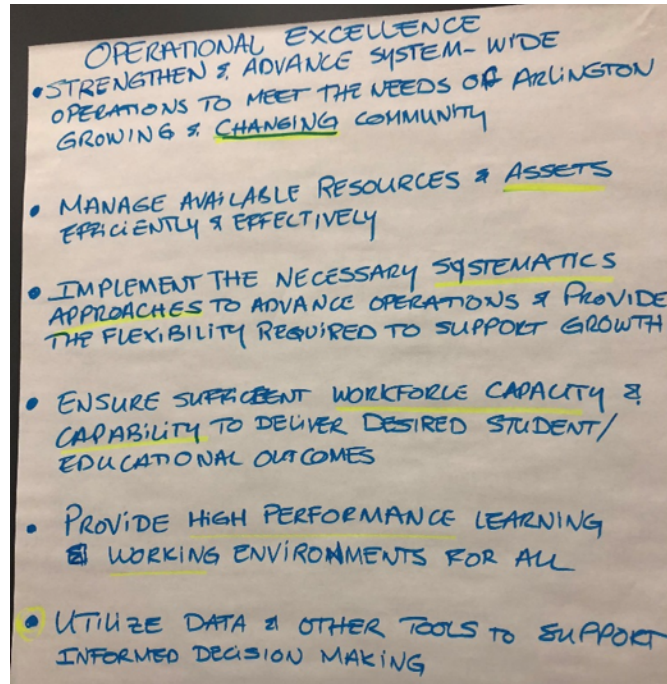 OPERATIONAL EXCELLENCE
• STRENGTHEN & ADVANCE SYSTEM-WIDE
OPERATIONS TO MEET THE NEEDS OF ARLINGTON
GROWING & CHANGING COMMUNITY
• MANAGE AVAILABLE RESOURCES & ASSETS
EFFICIENTLY & EFFECTIVELY
• IMPLEMENT THE NECESSARY SYSTEMATICS
APPROACHES TO ADVANCE OPERATIONS & PROVIDE
THE FLEXIBILITY REQUIRED TO SUPPORT GROWTH
• ENSURE SUFFICENT WORKFORCE CAPACITY &
CAPABILITY TO DELIVER DESIRED STUDENT/
EDUCATIONAL OUTCOMES
• PROVIDE HIGH PERFORMANCE LEARNING
& WORKING ENVIRONMENTS FOR ALL
• UTILIZE DATA & OTHER TOOLS TO SUPPORT
INFORMED DECISION MAKING